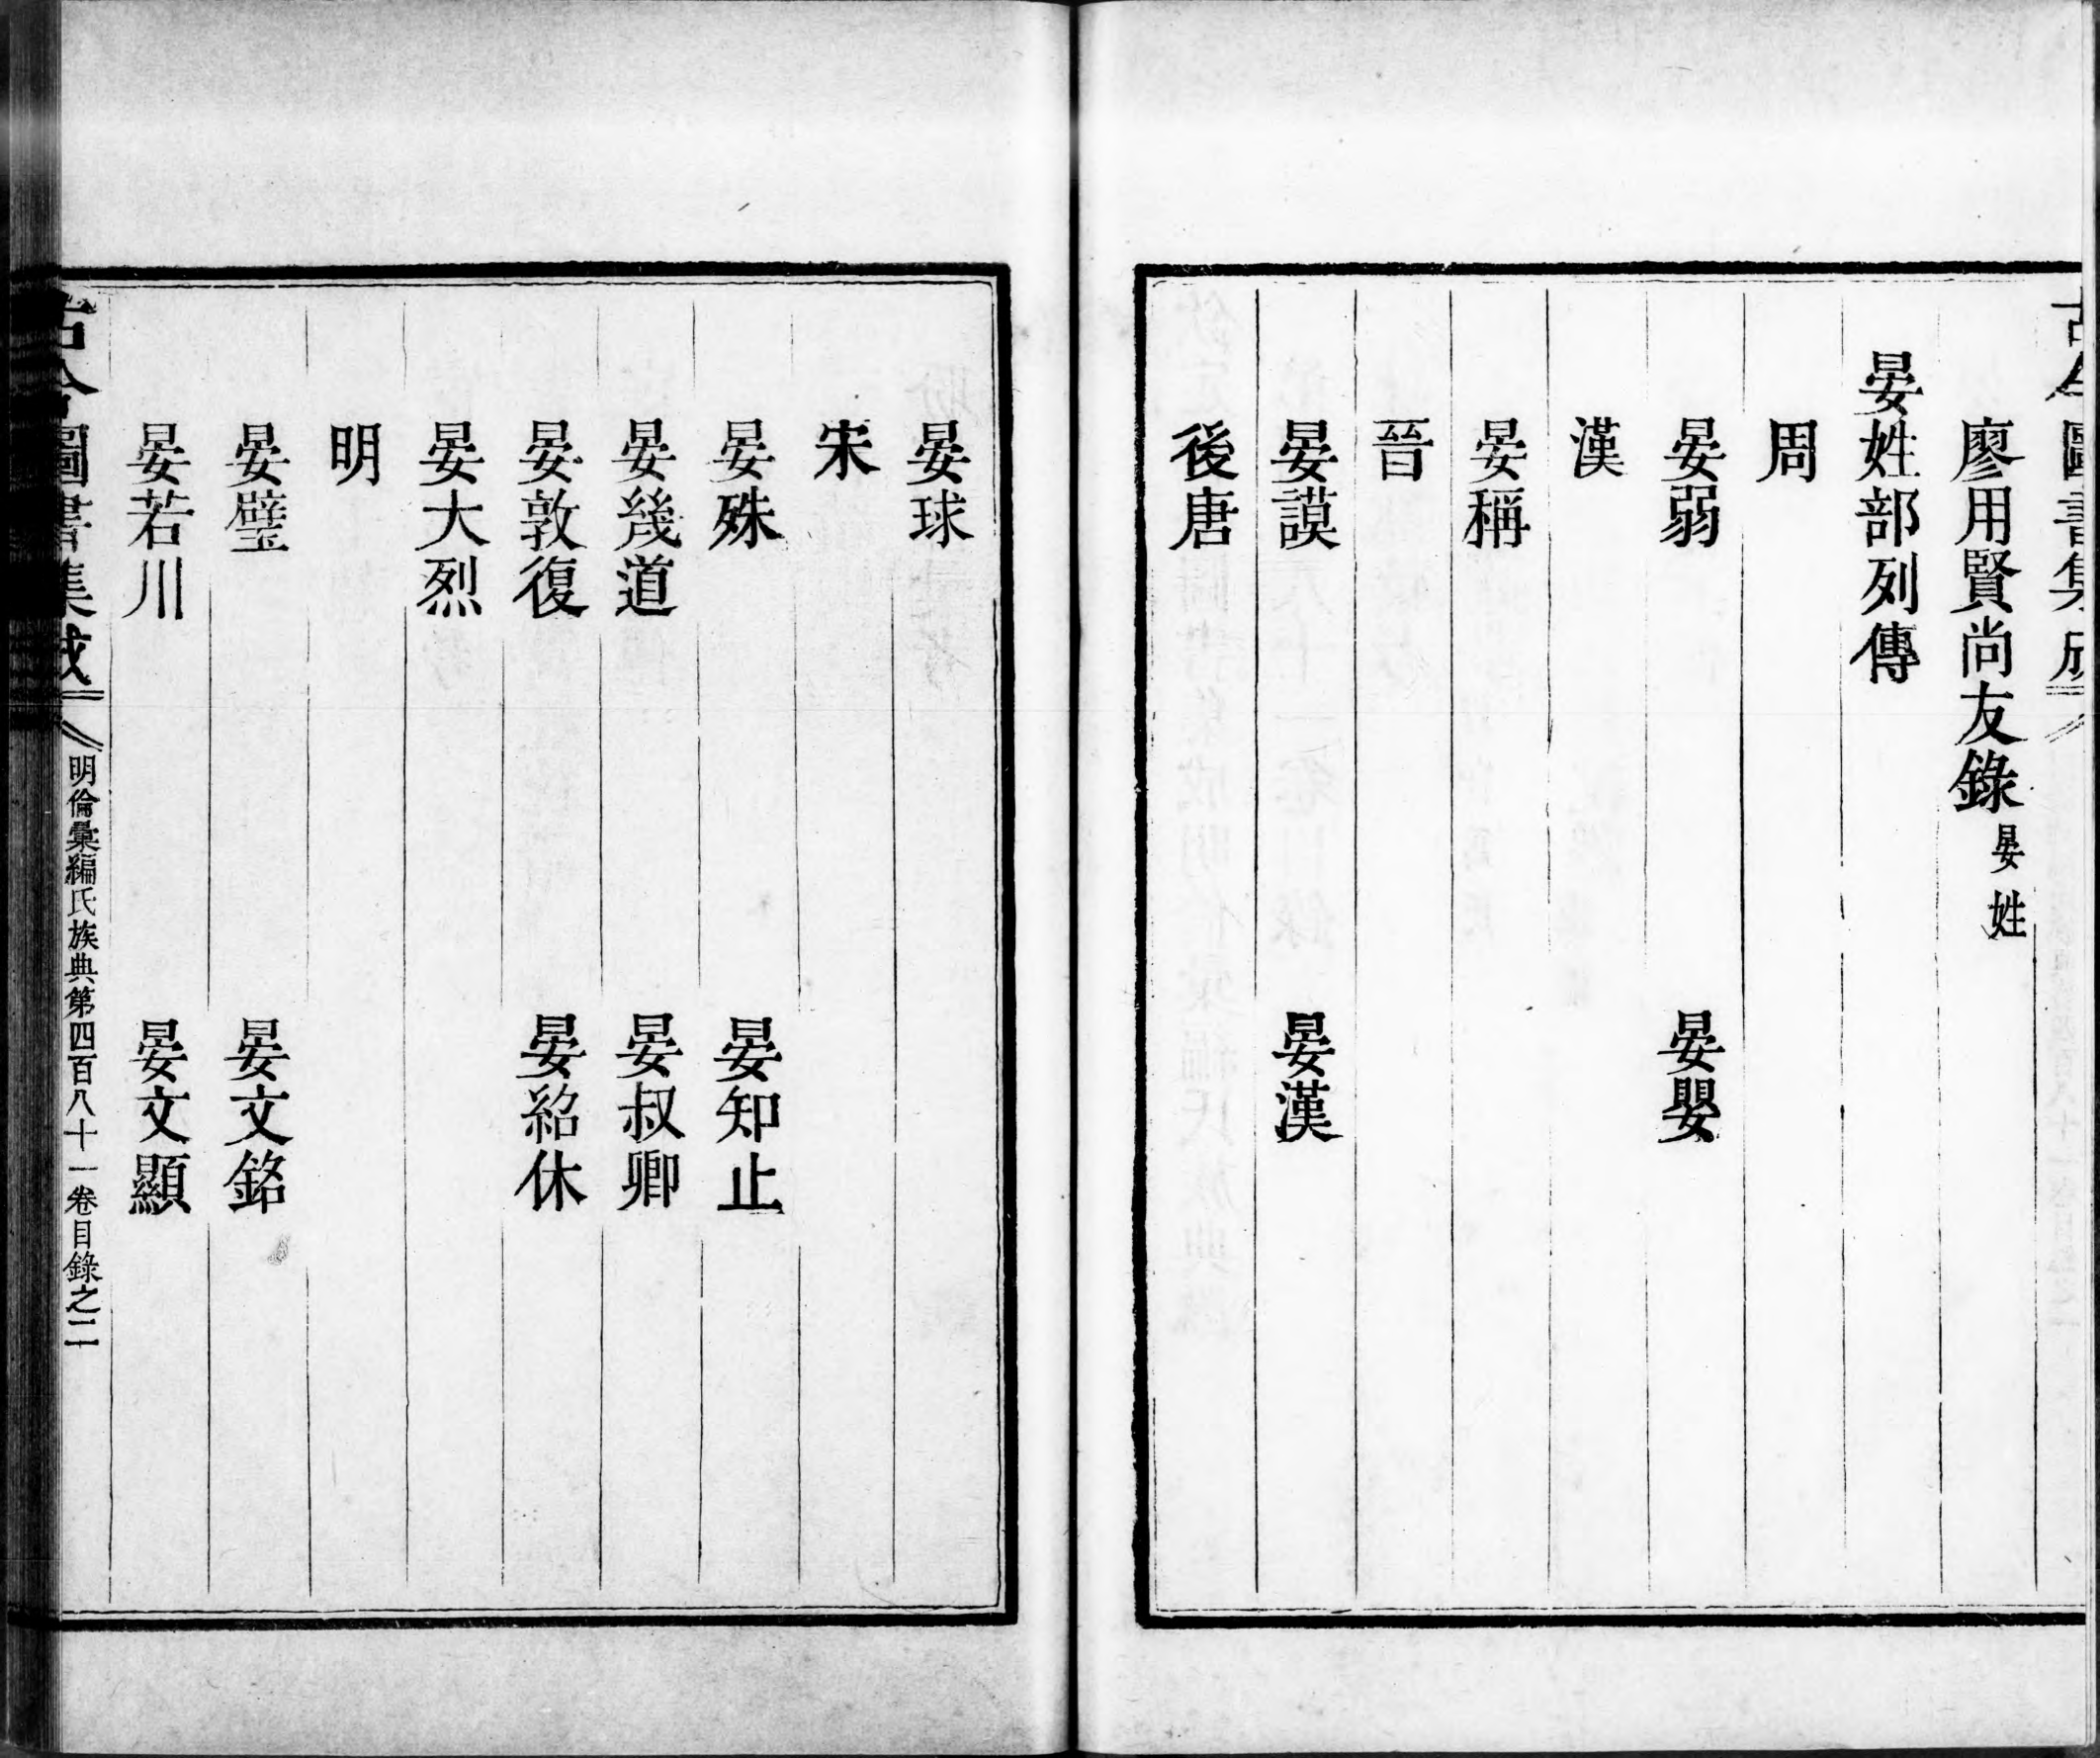 古今圖書集成
廖用賢尚友錄晏姓
晏姓部列傳
周
晏弱　晏嬰
漢
晏稱
晉
晏謨　晏漢
後唐
晏球
宋
晏殊　晏知止
晏幾道　晏叔卿
晏敦復　晏紹休
晏大烈
明
晏璧　晏文銘
晏若川　晏文顯
古今圖書集成　明倫彙編氏族典第四百八十一卷目錄之二